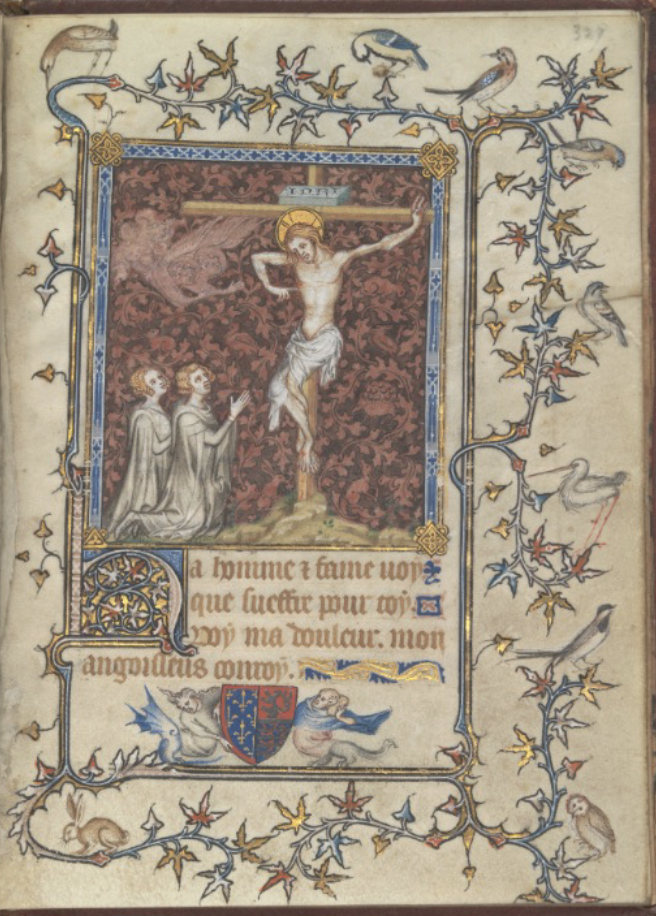 329
INRI
Ha homme ⁊ fame uoy
que sueffre pour toy.
Voy ma douleur. mon
angoisseus conroy.